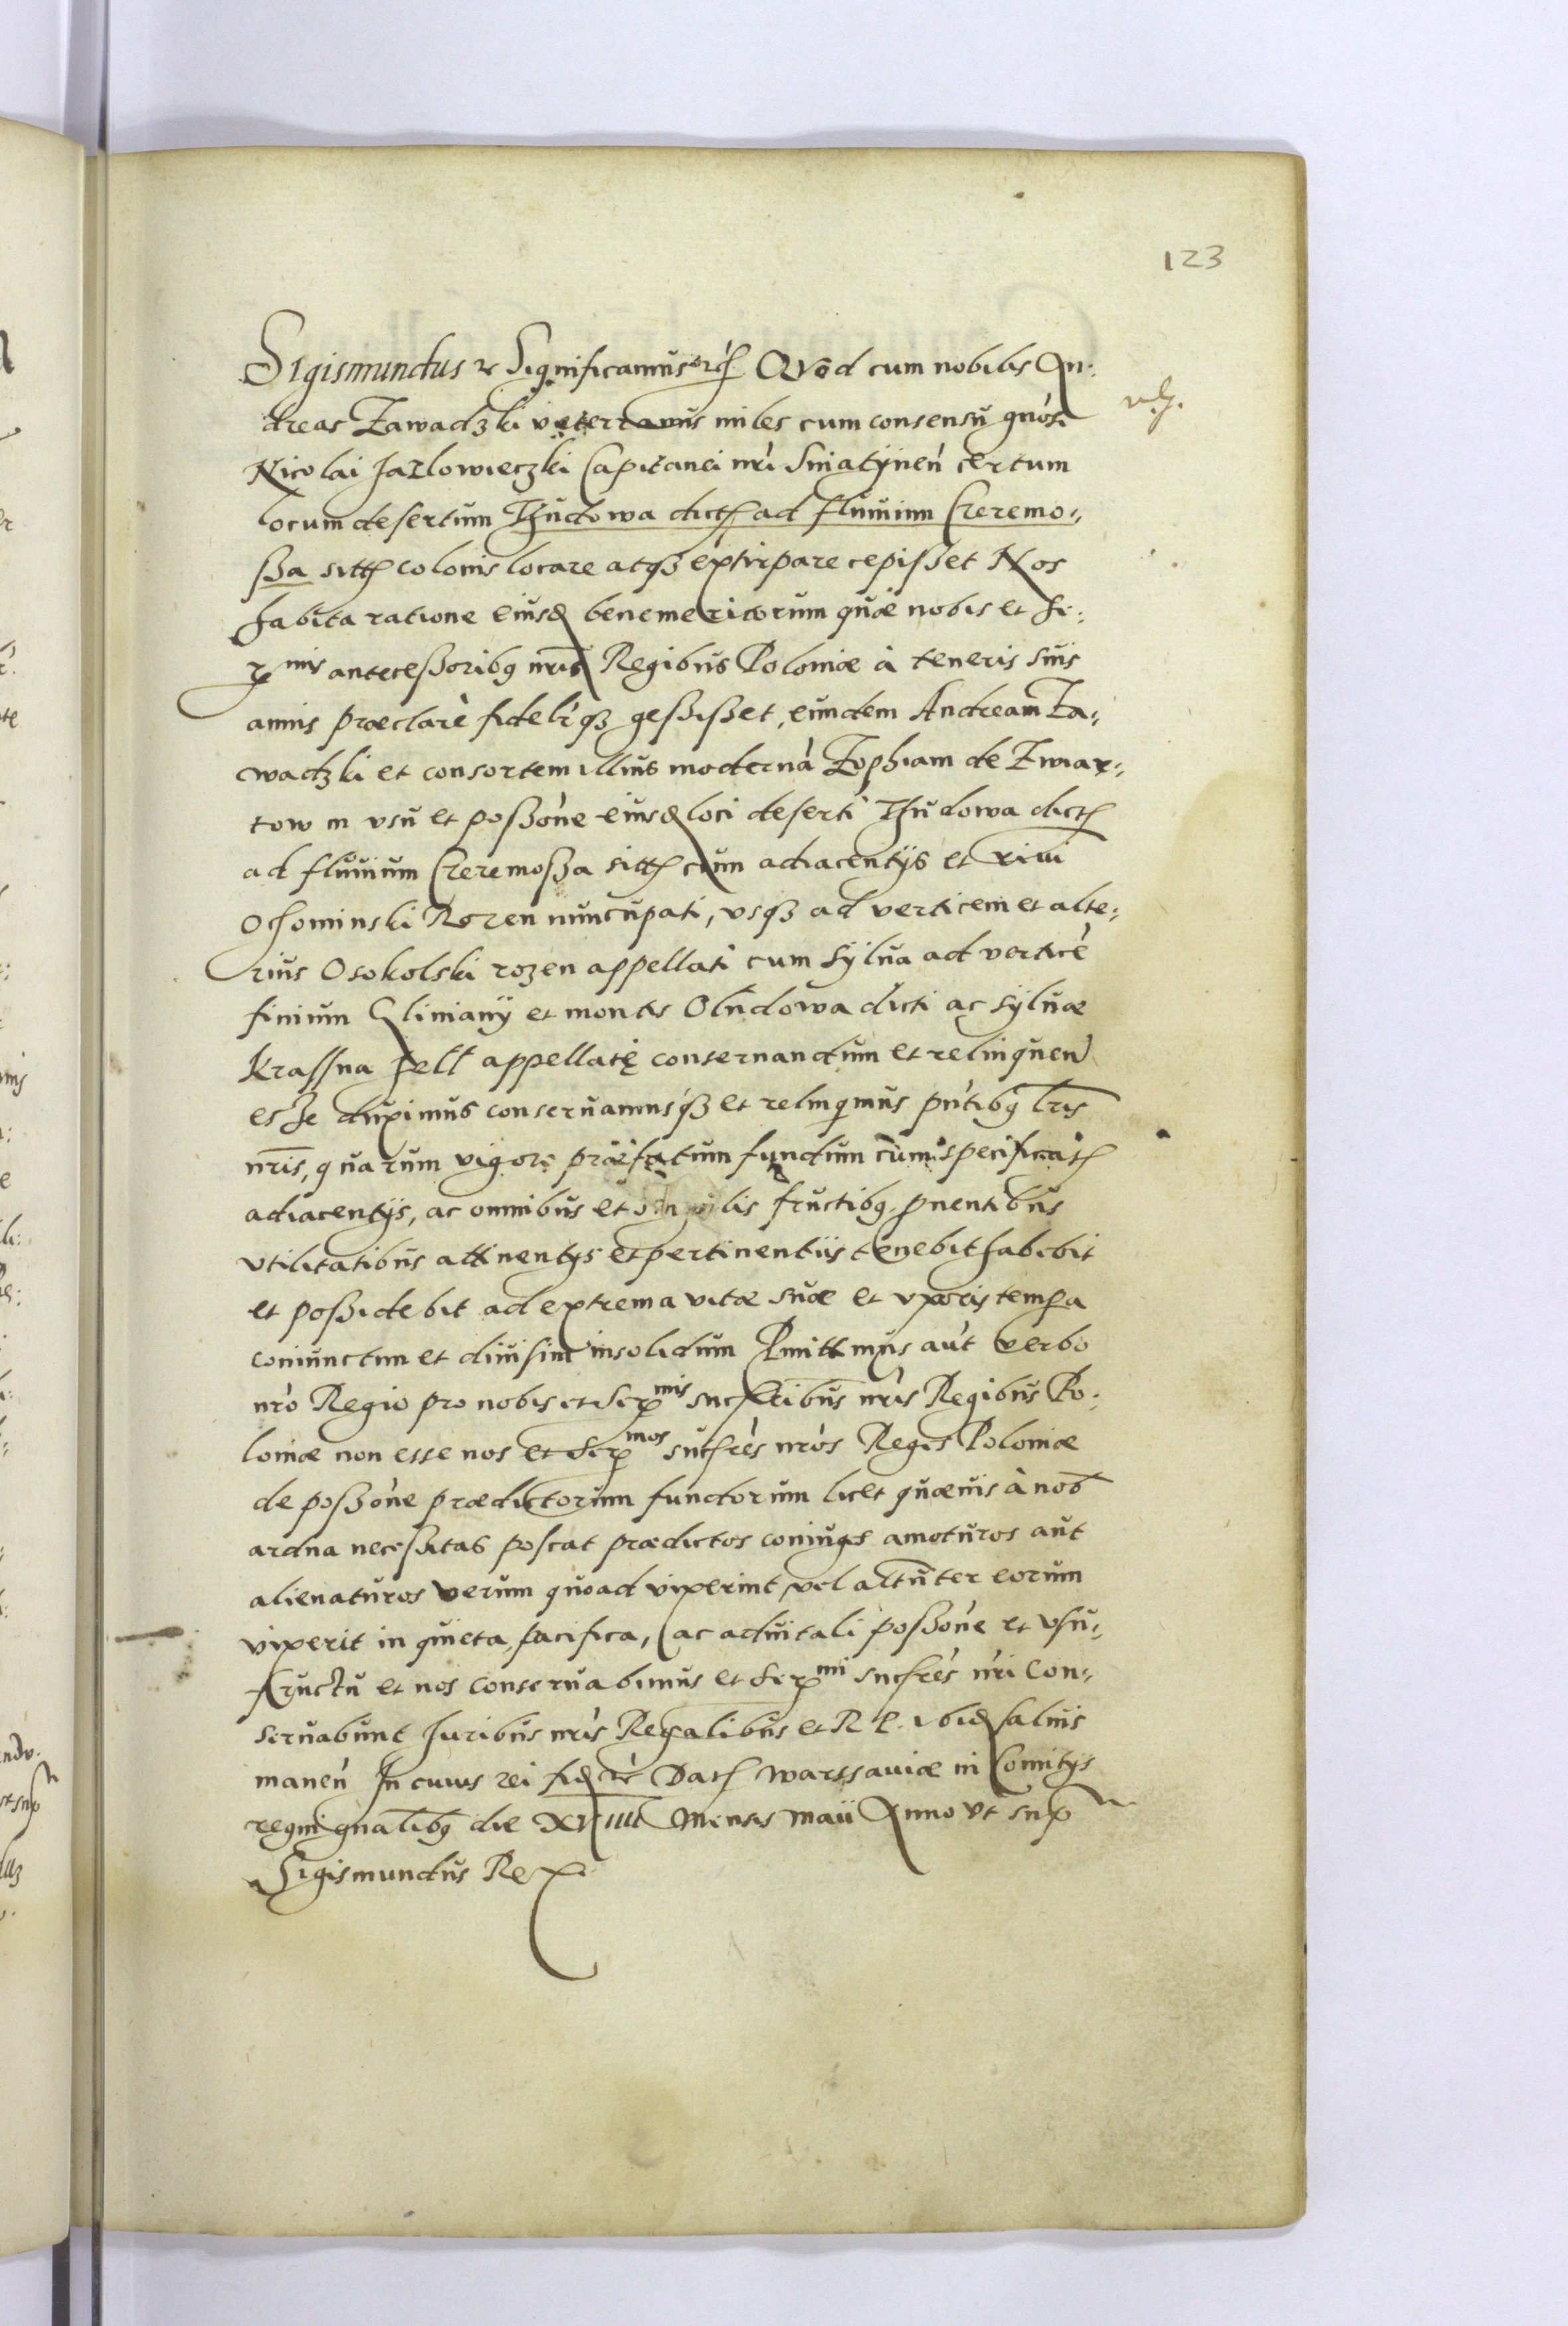 123
Sigismundus etc Significamus etc Quod cum nobilis An:
dreas Zawadzki veteranus miles cum consensu gnosi
Nicolai Jazlowieczki Capitanei nri Sniatÿnen certum
locum desertum Thudowa dict ad fluuium Czeremo:
ßa sitt colonis locare atqz extirpare cepißet Nos
habita ratione eiusd benemeritorum quæ nobis et Se:
rmis anteceßoribq nris Regibus Poloniæ à teneris suis
annis præclarè fideliqz geßißet, eundem Andream Za:
wadzki et consortem illius modernã Zophiam de Zwiar:
tow in vsu et poßone eiusd loci deserti Thudowa dict
ad fluuium Czeremoßa sitt cum adiacentijs et riui
Ochominski Rozen nuncupati, vsqz ad verticem et alte:
rius Osokolski rozen appellati cum sylua ad verticè
finium Glinianÿ et montis Oludowa dicti ac syluæ
Krassna appellatę conseruandum et relinquen
esse duximus conseruamusqz et relinqimus pntibq lris
nris, quarum vigore præfatum fundum cum specificat
adiacentijs, ac omnibus et singulis fructibq. pnentibus
vtilitatibus attinentijs et pertinentiis tenebit habebit
et poßidebit ad extrema vitæ suæ et vxoris tempa
coniunctim et diuisim insolidum Pmittimus aut verbo
nrò Regio pro nobis et Sermis sucßribus nris Regibus Po:
loniæ non esse nos et Sermos sucsrès nros Reges Poloniæ
de poßone prædictorum fundorum licet quæuis à nob
ardua neceßitas poscat prædictos coniuges amoturos aut
alienaturos verum quoad vixerint vel altunter eorum
vixerit in quieta, pacifica, ac aduitali poßone et vsu:
fructu et nos conseruabimus et Sermi sucsrès nri con:
seruabunt Juribus nris Regalibus et R P. ibid saluis
manen In cuius rei fid etc Dat Warssauiæ in Comitijs
regni gnalibq die XVIIII Mensis Maii Anno vt supr
Sigismundus Rex